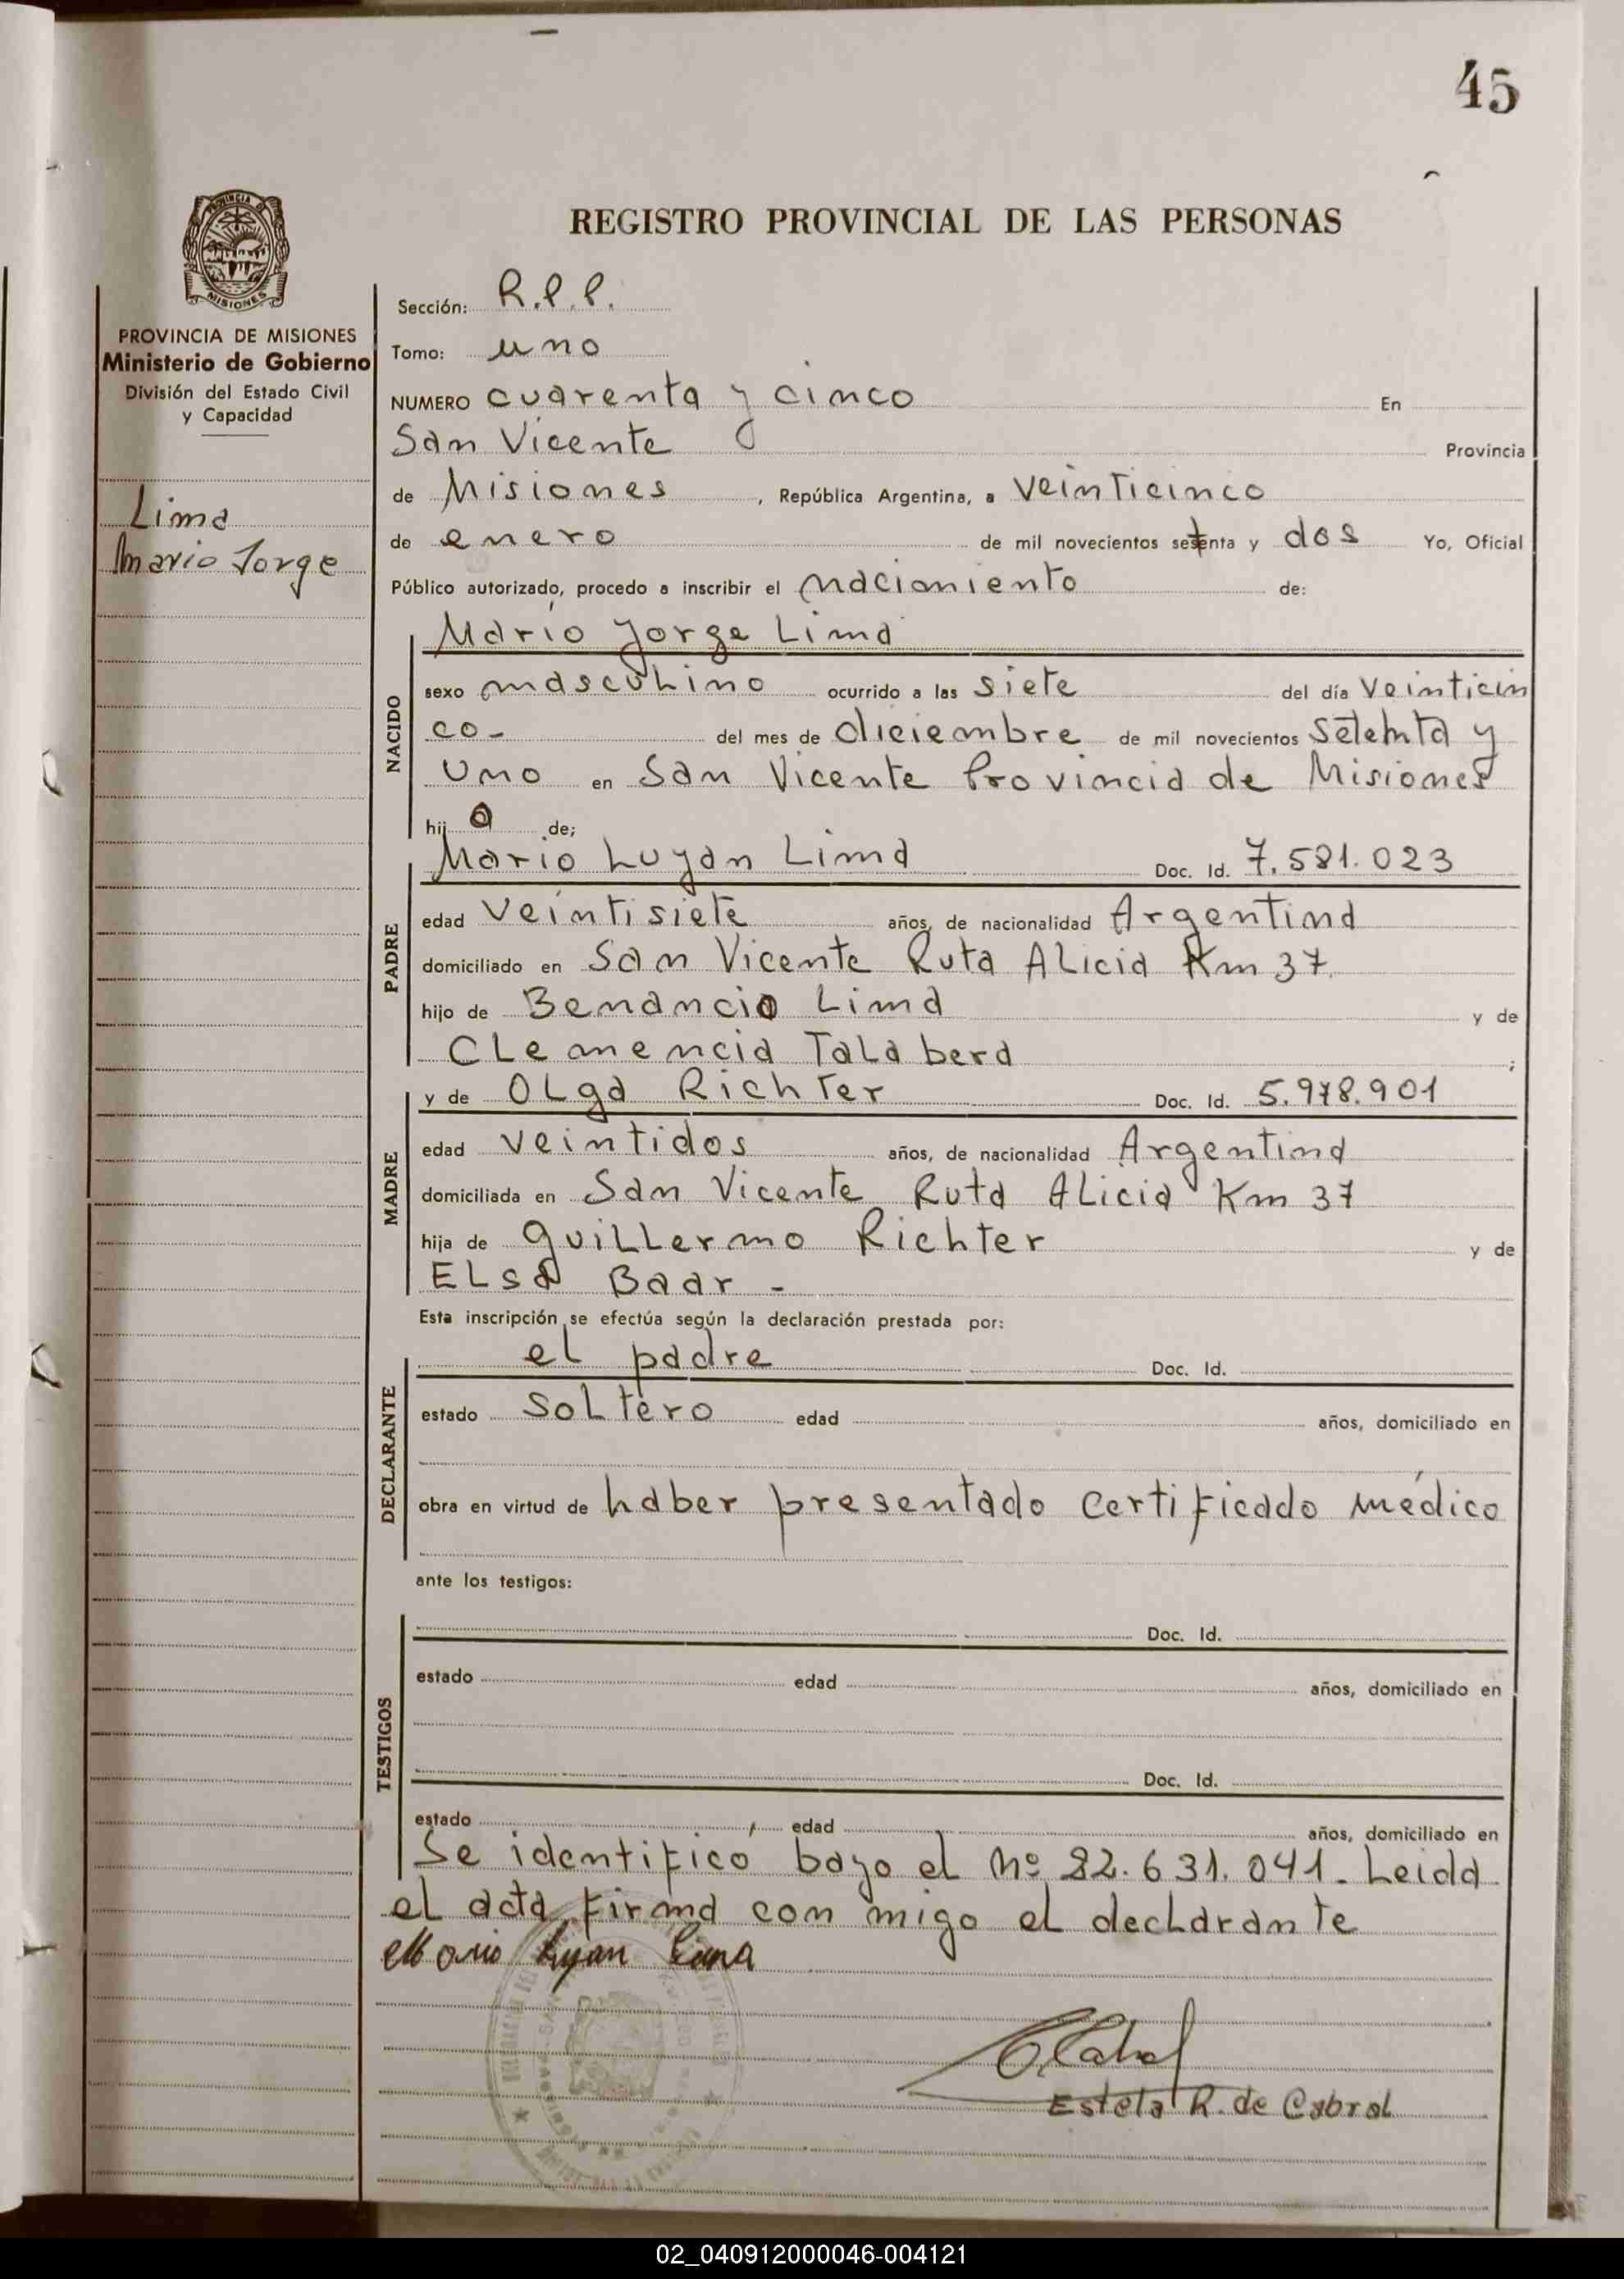 45
REGISTRO PROVINCIAL DE LAS PERSONAS
PROVINCIA DE MISIONES
Ministerio de Gobierno
División del Estado Civil
y Capacidad
Lima
Mario Jorge
Sección: R.P.P.
Tomo: uno
NUMERO cuarenta y cinco En
San Vicente Provincia
de Misiones, República Argentina, a veinticinco
de enero de mil novecientos setenta y dos Yo, Oficial
Público autorizado, procedo a inscribir el nacimiento de:
Mario Jorge Lima
NACIDO
sexo masculino ocurrido a las siete del día veinticin
co- del mes de diciembre de mil novecientos setenta y
uno en San Vicente Provincia de Misiones
hijo de;
PADRE
Mario Luyan Lima Doc. Id. 7.581.023
edad veintisiete años, de nacionalidad Argentina
domiciliado en San Vicente Ruta Alicia Km 37.
hijo de Benancio Lima y de
Clemencia Talabera ;
MADRE
y de Olga Richter Doc. Id. 5.978.901
edad veintidos años, de nacionalidad Argentina
domiciliada en San Vicente Ruta Alicia Km 37
hija de Guillermo Richter y de
Elsa Baar -
Esta inscripción se efectúa según la declaración prestada por:
DECLARANTE
el padre Doc. Id.
estado soltero edad años, domiciliado en
obra en virtud de haber presentado certificado médico
ante los testigos:
TESTIGOS
Doc. Id.
estado edad años, domiciliado en
Doc. Id.
estado edad años, domiciliado en
Se identificó bajo el Nº 22.631.041. Leida
el acta, firma con migo el declarante
Mario Luyan Lima
Estela R. de Cabral
02_040912000046-004121